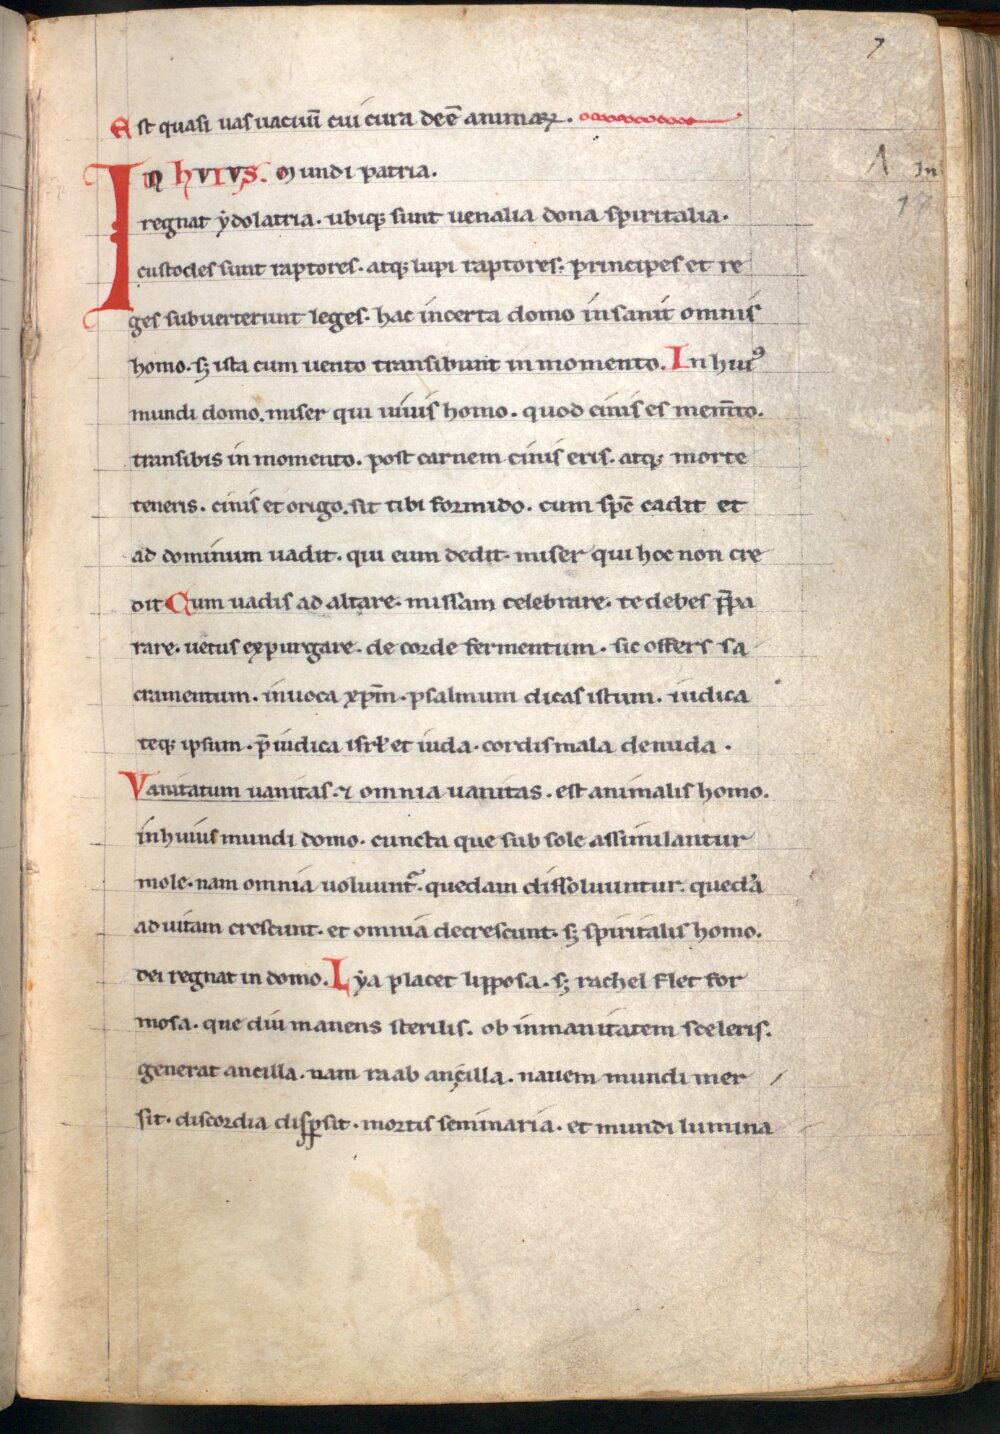 7
Est quasi uas uacuū cui cura deē animaꝝ.
In hVIVS. Mundi patria.
In
17
regnat ẏdolatria. ubiqꝫ sunt uenalia dona spiritalia.
custodes sunt raptores. atqꝫ lupi raptores. principes et re
ges subuerterunt leges. hac incerta domo insanit omnis
homo. sꝫ ista cum uento transibunt in momento. In huiꝰ
mundi domo. miser qui uiuis homo. quod cinis es mem̄to.
transibis in momento. post carnem cinis eris. atqꝫ morte
teneris. cinis et origo. sit tibi formido. cum sp̄c cadit et
ad dominum uadit. qui eum dedit. miser qui hoc non cre
dit Cum uadis ad altare. missam celebrare. te debes p̄pa
rare. uetus expurgare. de corde fermentum. sic offers sa
cramentum. inuoca xp̄m. psalmum dicas istum. iudica
teqꝫ ipsum. p̄iudica isrł et iuda. cordis mala denuda.
Vanitatum uanitas. ⁊ omnia uanitas. est animalis homo.
in huius mundi domo. cuncta que sub sole assimilantur
mole. nam omnia uoluunt᷑. quedam dissoluuntur. quedā
ad uitam crescunt. et omnia decrescunt. sꝫ spiritalis homo.
dei regnat in domo. Lẏa placet lipposa. sꝫ rachel flet for
mosa. que diu manens sterilis. ob inmanitatem sceleris.
generat ancilla. nam raab ancilla. nauem mundi mer
sit. discordia disꝑsit. mortis seminaria. et mundi lumina